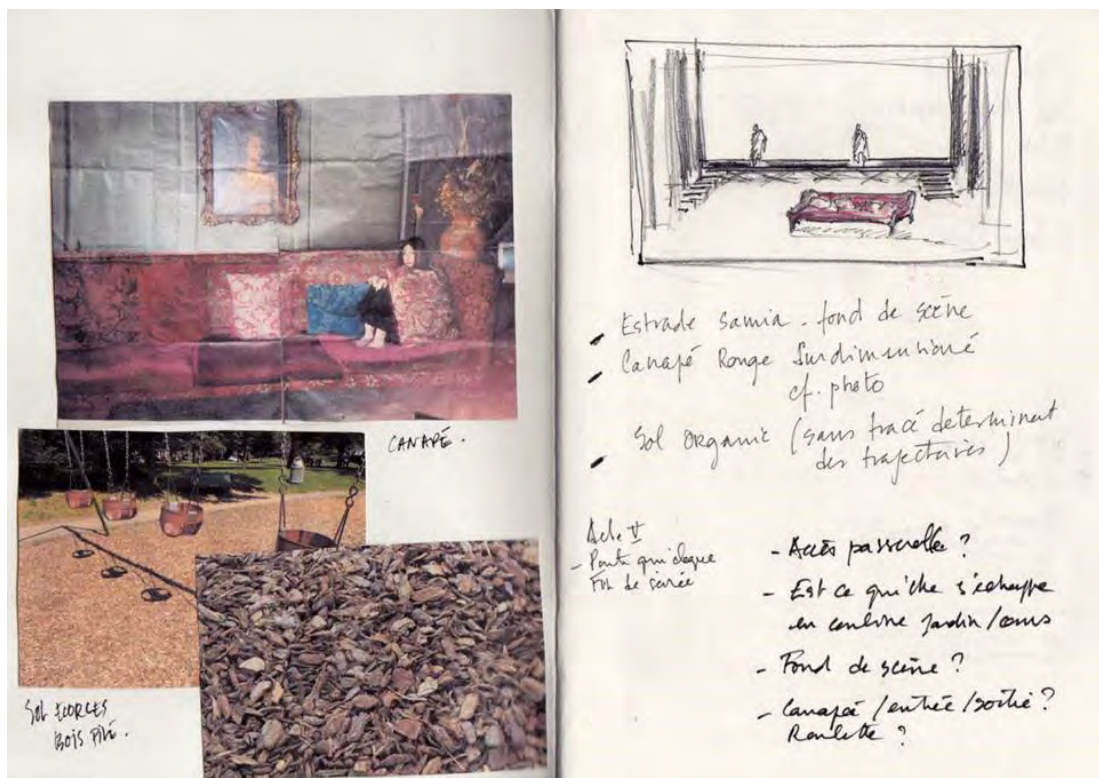 CANAPÉ.
SOL ECORCES
BOIS PILÉ.
- Estrade samia - fond de scène
- Canapé Rouge Surdimensioné
cf. photo
- Sol organic (sans tracé determinant
des trajectoires)
Acte V
- Porte qui claque
Fin de soirée
- Accès passerelle ?
- Est ce qu'elle s'echappe
en coulisse jardin/cours
- Fond de scène ?
- Canapé/entrée/sortie ?
Roulette ?